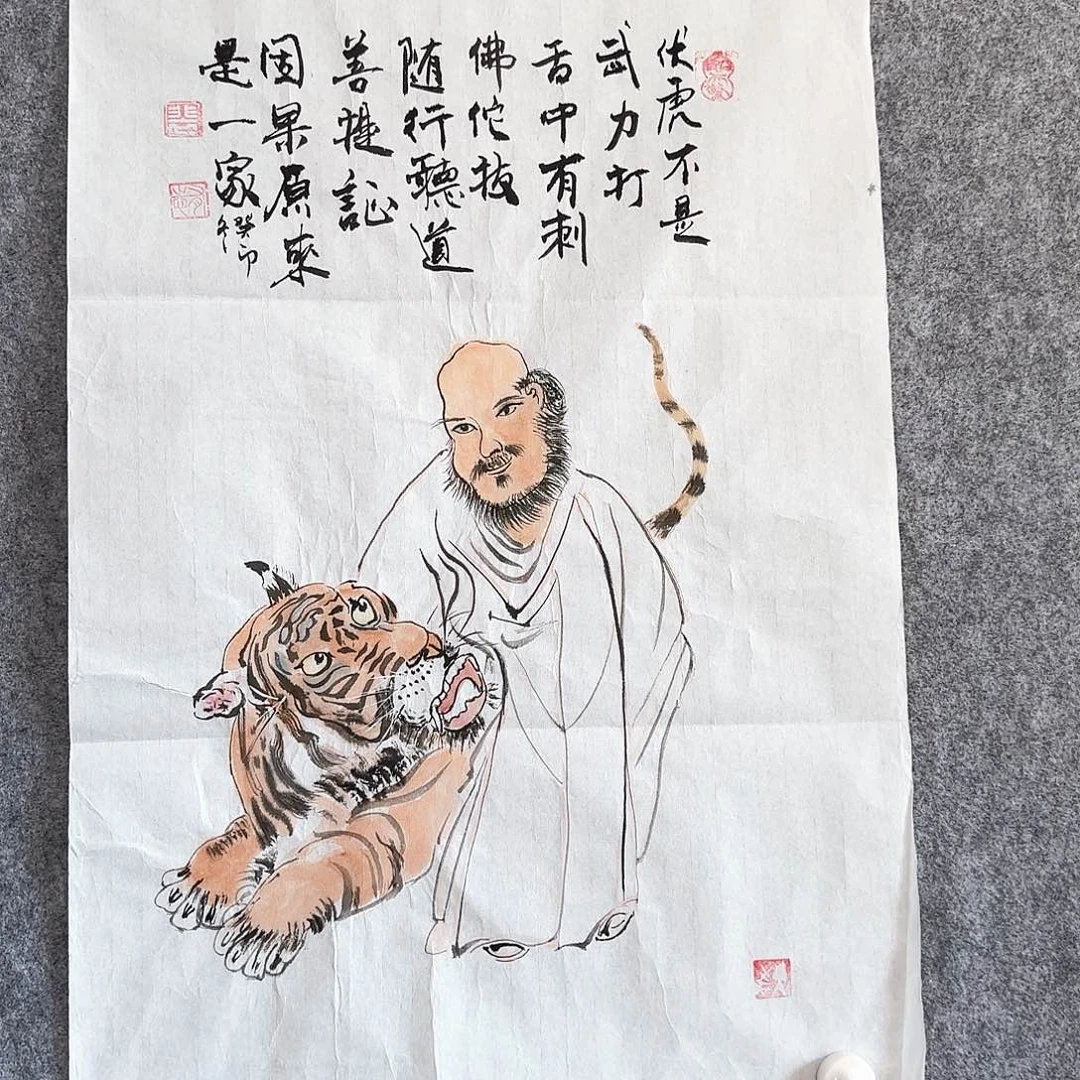 伏虎不是
武力打
舌中有刺
佛佗拔
随行聽道
菩提証
因果原来
是一家
癸卯年